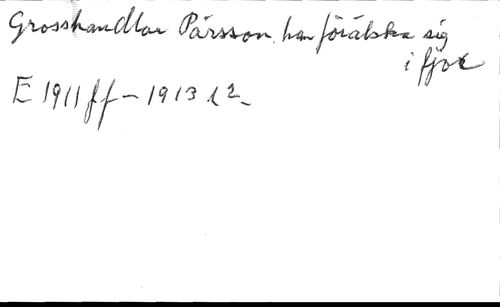 Grosshandlar Pärsson han förälska sig
i fjor
E 1911 ff - 1913 12